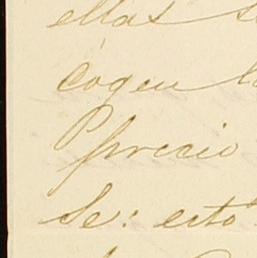 ellas s
cogen l
precio
se: esto